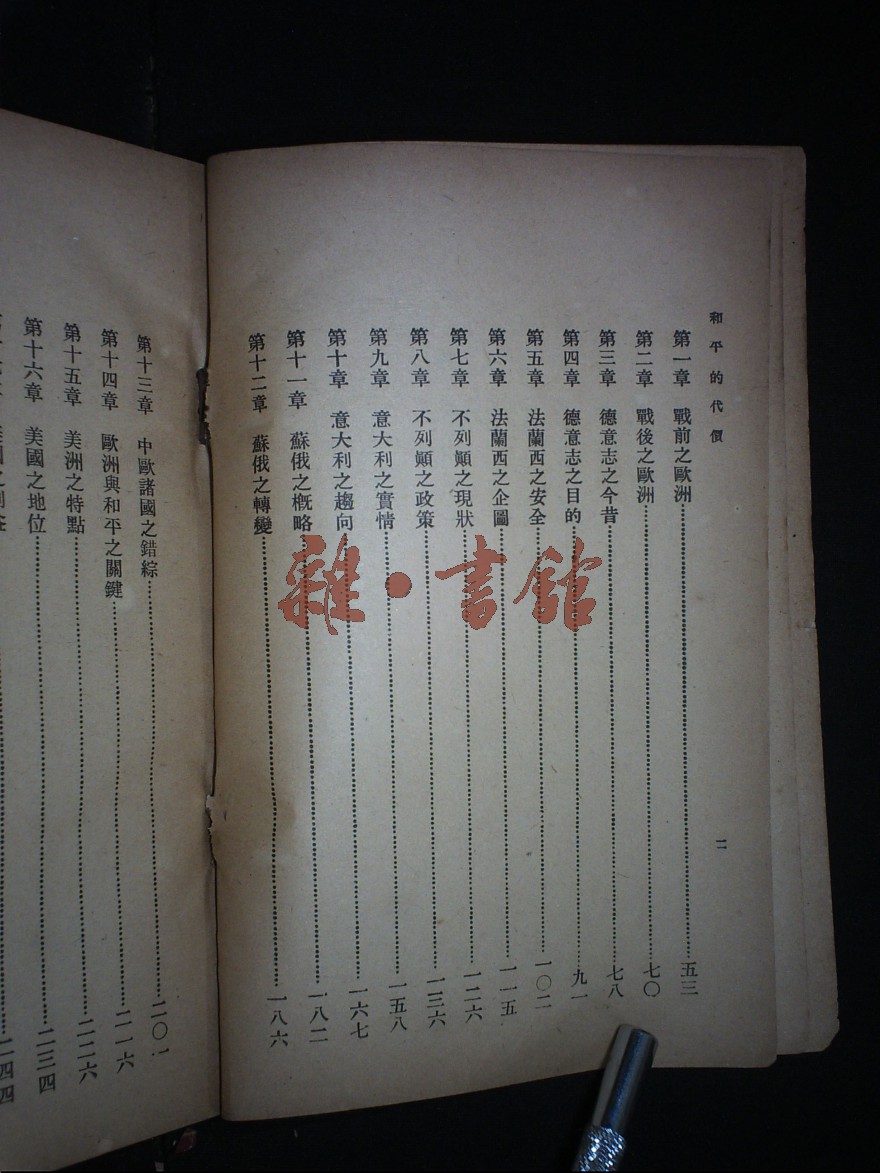 和平的代價
第一章 戰前之歐洲 五三
第二章 戰後之歐洲 七〇
第三章 德意志之今昔 七八
第四章 德意志之目的 九一
第五章 法蘭西之安全 一〇二
第六章 法蘭西之企圖 一一五
第七章 不列顚之現狀 一二六
第八章 不列顚之政策 一三六
第九章 意大利之實情 一五八
第十章 意大利之趨向 一六七
第十一章 蘇俄之槪略 一八二
第十二章 蘇俄之轉變 一八六
二
第十三章 中歐諸國之錯綜 二〇一
第十四章 歐洲與和平之關鍵 二一六
第十五章 美洲之特點 二二六
第十六章 美國之地位 二三四
二四四
雜·書館